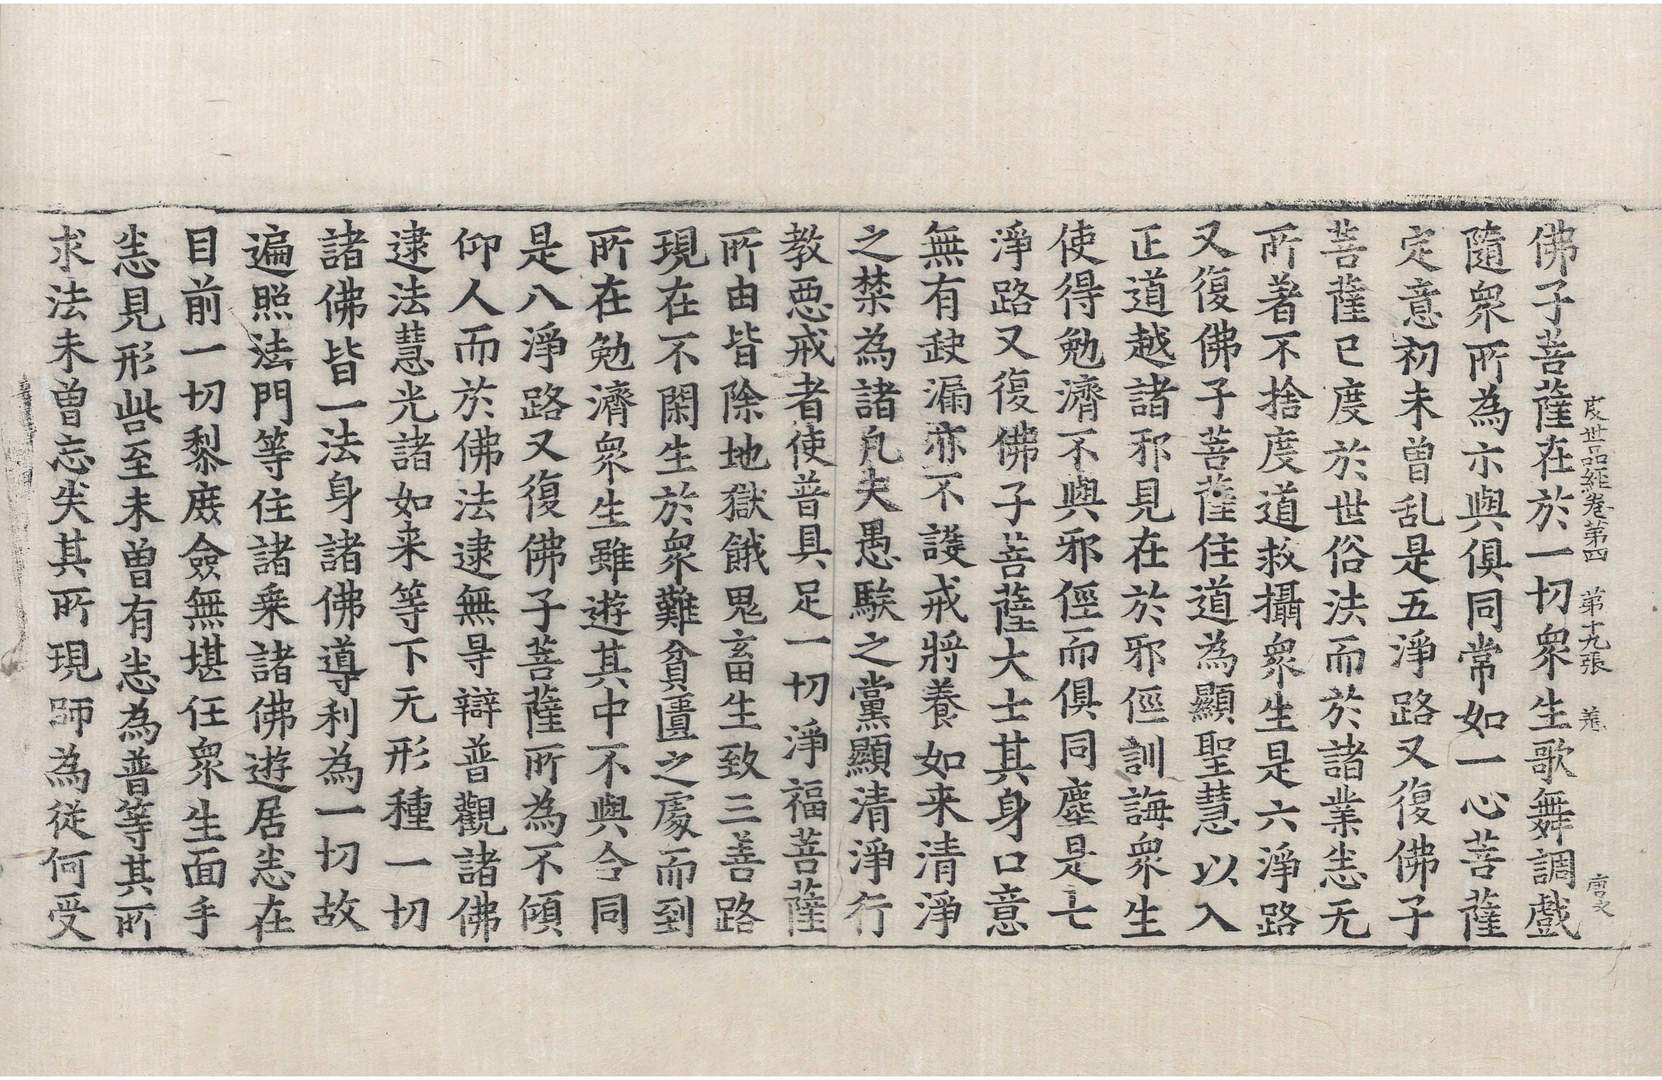 度世品經卷第四　第十九張
佛子菩薩在於一切衆生歌舞調戲
隨衆所為亦與俱同常如一心菩薩
定意初未曾乱是五淨路又復佛子
菩薩已度於世俗法而於諸業恙无
所著不捨度道救攝衆生是六淨路
又復佛子菩薩住道為顯聖慧以入
正道越諸邪見在於邪俓訓誨衆生
使得勉濟不與邪俓而俱同塵是七
淨路又復佛子菩薩大士其身口意
無有缺漏亦不護戒將養如来清淨
之禁為諸凡夫愚騃之黨顯清淨行
教惡戒者使普具足一切淨福菩薩
所由皆除地獄餓鬼畜生致三善路
現在不閑生於衆難貧匱之處而到
所在勉濟衆生雖遊其中不與令同
是八淨路又復佛子菩薩所為不傾
仰人而於佛法逮無㝵辯普觀諸佛
逮法慧光諸如来等下无形種一切
諸佛皆一法身諸佛導利為一切故
遍照法門等住諸乗諸佛遊居恙在
目前一切黎庶僉無堪任衆生面手
恙見形呰至未曽有恙為普等其所
求法未曽忘失其所現師為従何受